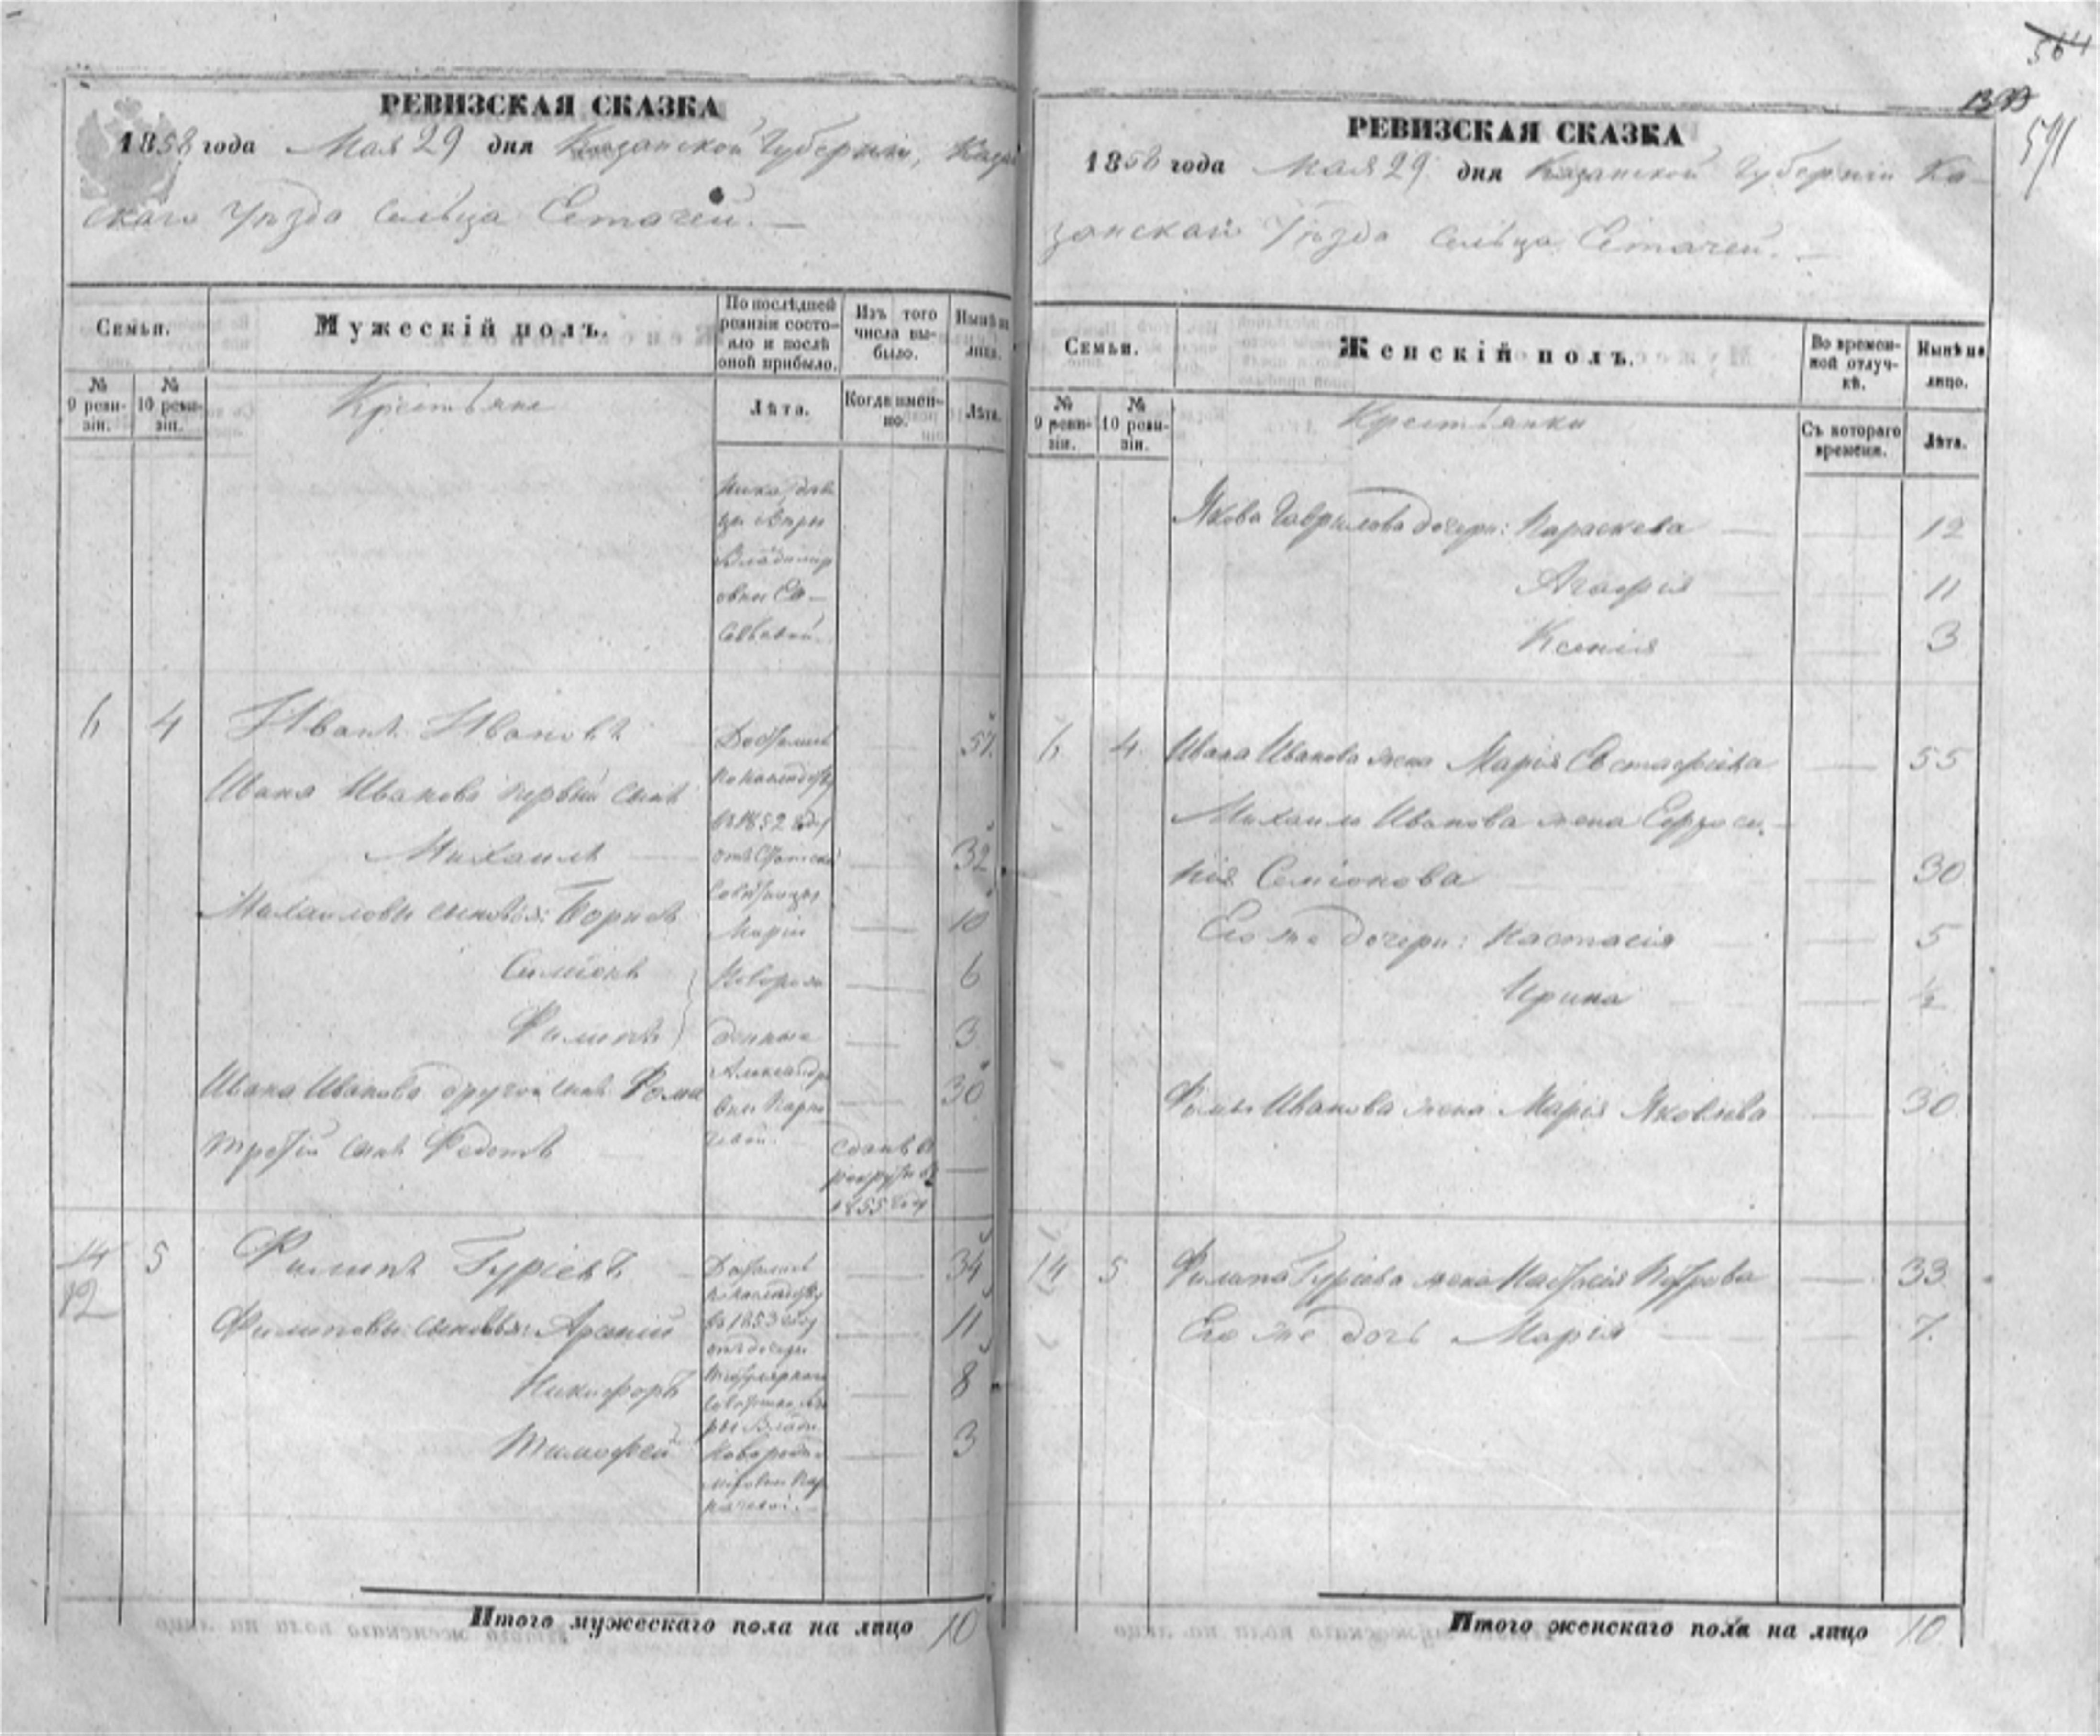 РЕВИЗСКАЯ СКАЗКА
1858 года Мая 29 дня Казанской Губерніи, Казан
скаго Уѣзда сельца Сетачей. —
Семьи.
Мужескій полъ.
По послѣдней ревизіи состояло и послѣ оной прибыло.
Изъ того числа выбыло.
Нынѣ на лицо.
№ 9 ревизіи.
№ 10 ревизіи.
Крестьяне
Лѣта.
Когда именно.
Лѣта.
Владимір
овны
6 4 Иванъ Ивановъ 57.
Достались
Ивана Иванова первый сынъ
въ 1852 году
Михаилъ 32
Михаиловы сыновья: Борисъ 10
Маріи
Симіонъ 6
Новорож
Филипъ 3
денные
Ивана Иванова другой сынъ Фома 30
Александро
вны
третій сынъ Федотъ
сданъ въ
рекруты въ
1855 году
14 5 Филипъ Гуріевъ 34
12
Достались
Филиповы сыновья: Арсеній 11
въ 1853 году
отъ дочери
Никифоръ 8
Тимофей 3
Новорож
Итого мужескаго пола на лицо 10
564
591
РЕВИЗСКАЯ СКАЗКА
1858 года Мая 29 дня Казанской Губерніи Ка-
занскаго Уѣзда сельца Сетачей. —
Семьи.
Женскій полъ.
Во временной отлучкѣ.
Нынѣ на лицо.
№ 9 ревизіи.
№ 10 ревизіи.
Крестьянки
Съ котораго времени.
Лѣта.
Якова Гаврилова дочери: Параскева 12
Агафія 11
Ксенія 3
6 4 Ивана Иванова жена Марія Евстафіева 55
Михаила Иванова жена Ефроси-
нія Семіонова 30
Его же дочери: Настасія 5
Ирина ½
Фомы Иванова жена Марія Яковлева 30
14 5 Филипа Гуріева жена Настасія Петрова 33
Его же дочь Марія 7.
Итого женскаго пола на лицо 10